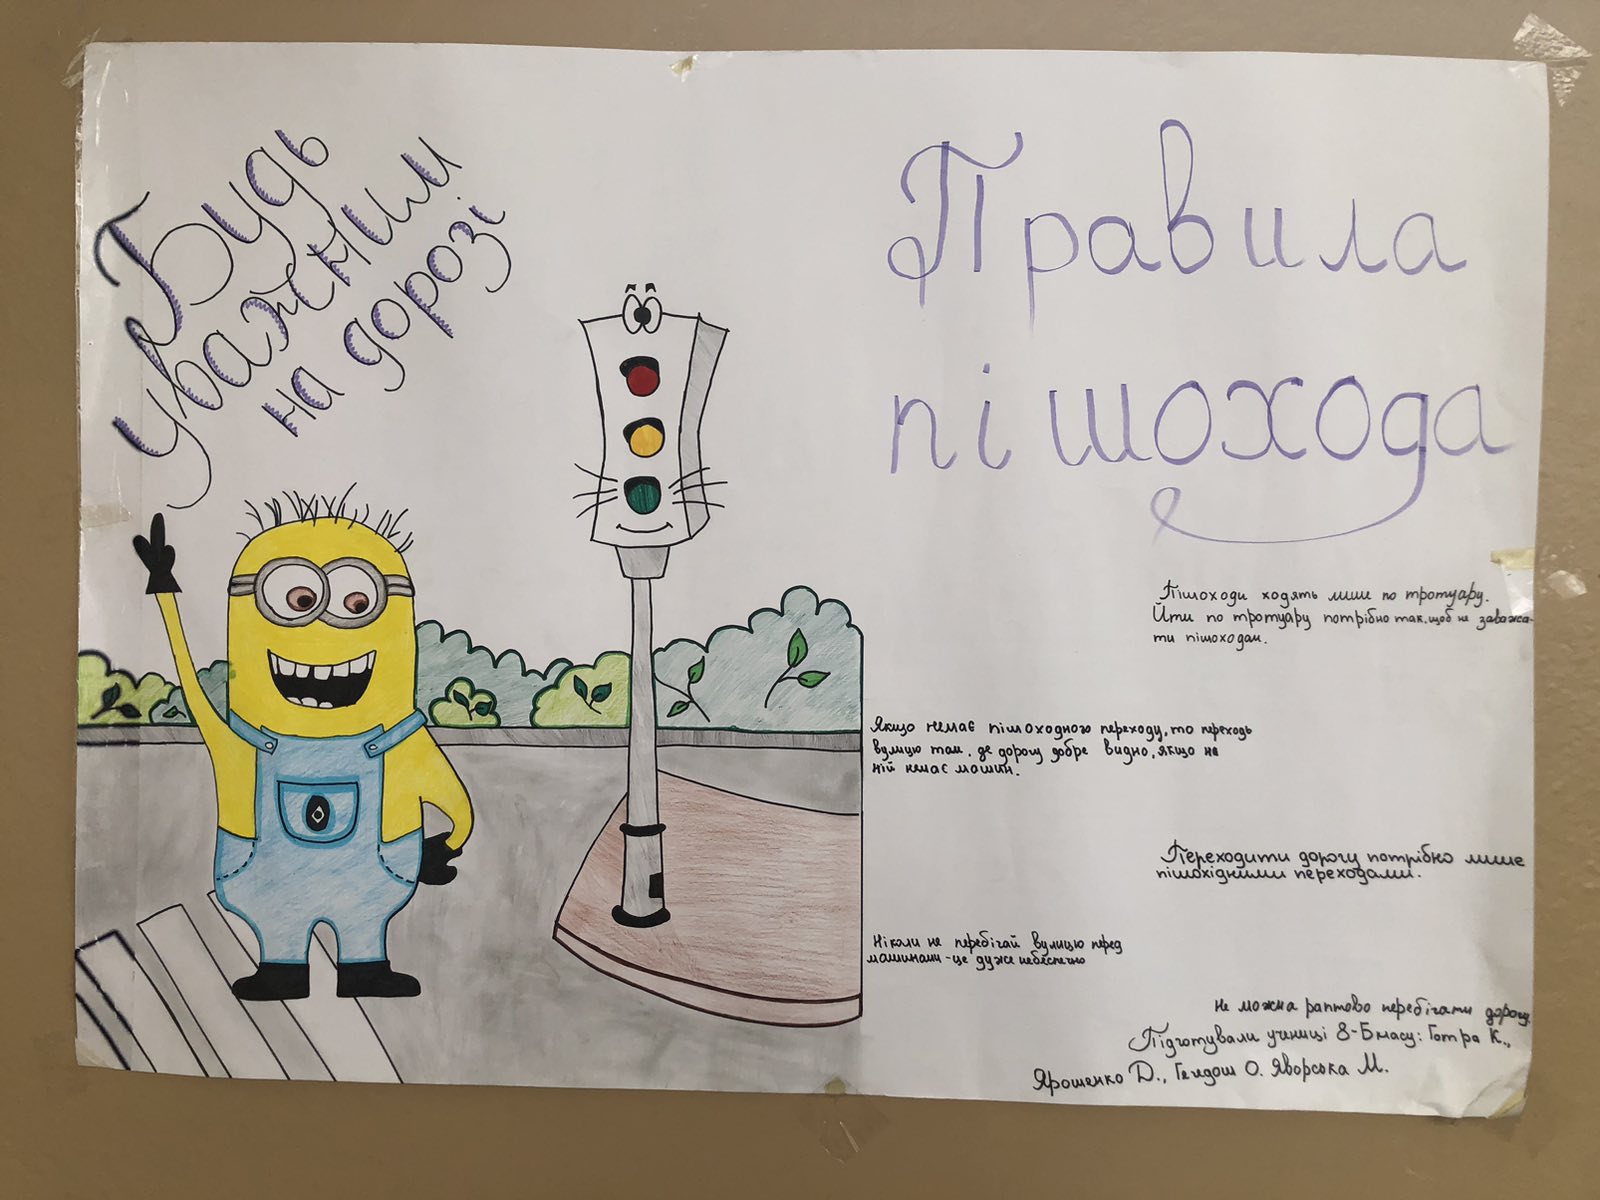 Будь
уважним
на дорозі
Правила
пішохода
Пішоходи ходять лише по тротуару.
Йти по тротуару потрібно так, щоб не заважа-
ти пішоходам.
Якщо немає пішоходного переходу, то переходь
вулицю там, де дорогу добре видно, якщо на
ній немає машин.
Переходити дорогу потрібно лише
пішохідними переходами.
Ніколи не перебігай вулицю перед
машинами - це дуже небеспечно
Не можна раптово перебігати дорогу.
Підготували учениці 8-Б класу: Готра К.,
Ярошенко Д., Гендош О. Яворська М.